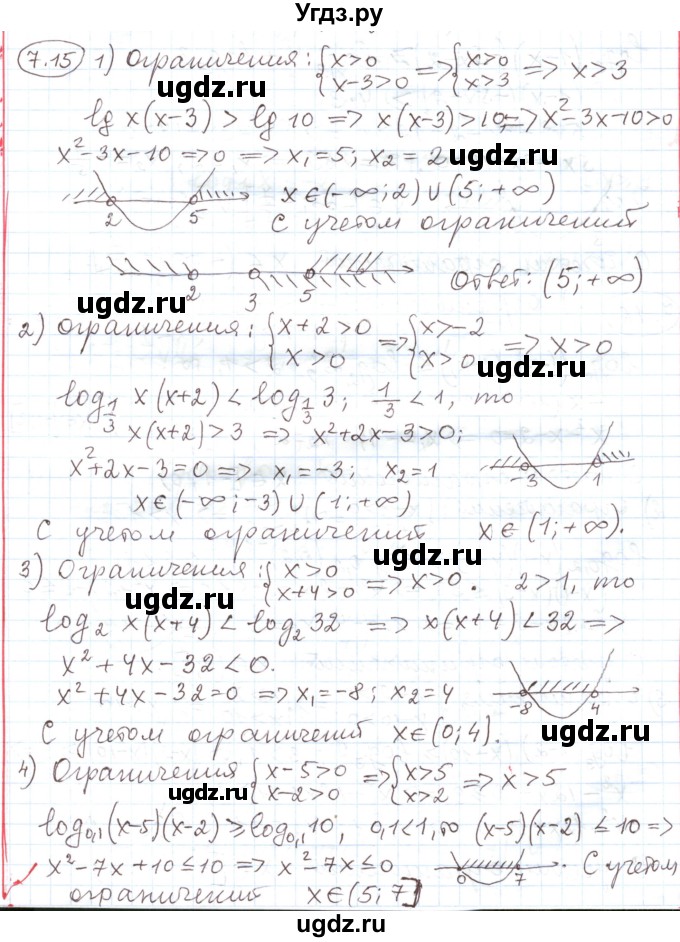 Угдз.ру
7.15 1) Ограничения: {x>0 x-3>0 => {x>0 x>3 => x>3
lg x(x-3) > lg 10 => x(x-3)>10 => x²-3x-10>0
x²-3x-10 => 0 => x₁=5; x₂=2
ugdz.ru
2 5 x∈(-∞;2)∪(5;+∞)
ugdz.ru
с учетом ограничений
2 3 5 Ответ: (5;+∞)
ugdz.ru
2) Ограничения: {x+2>0 x>0 => {x>-2 x>0 => x>0
ugdz.ru
log₁/₃ x(x+2) < log₁/₃ 3; 1/3 <1, то
x(x+2)>3 => x²+2x-3>0;
x²+2x-3=0 => x₁=-3; x₂=1 -3 1
x∈(-∞;-3)∪(1;+∞)
С учетом ограничений x∈(1;+∞).
ugdz.ru
3) Ограничения: {x>0 x+4>0 => x>0. 2>1, то
ugdz.ru
log₂ x(x+4) < log₂ 32 => x(x+4)<32 =>
ugdz.ru
x²+4x-32<0.
x²+4x-32=0 => x₁=-8; x₂=4 -8 4
ugdz.ru
С учетом ограничений x∈(0;4).
4) Ограничения {x-5>0 x-2>0 => {x>5 x>2 => x>5
ugdz.ru
log₀,₁(x-5)(x-2) ⩾ log₀,₁10, 0,1<1, то (x-5)(x-2) ≤ 10 =>
x²-7x+10≤10 => x²-7x≤0 0 7 . С учетом
ugdz.ru
ограничений x∈(5;7]
ugdz.ru